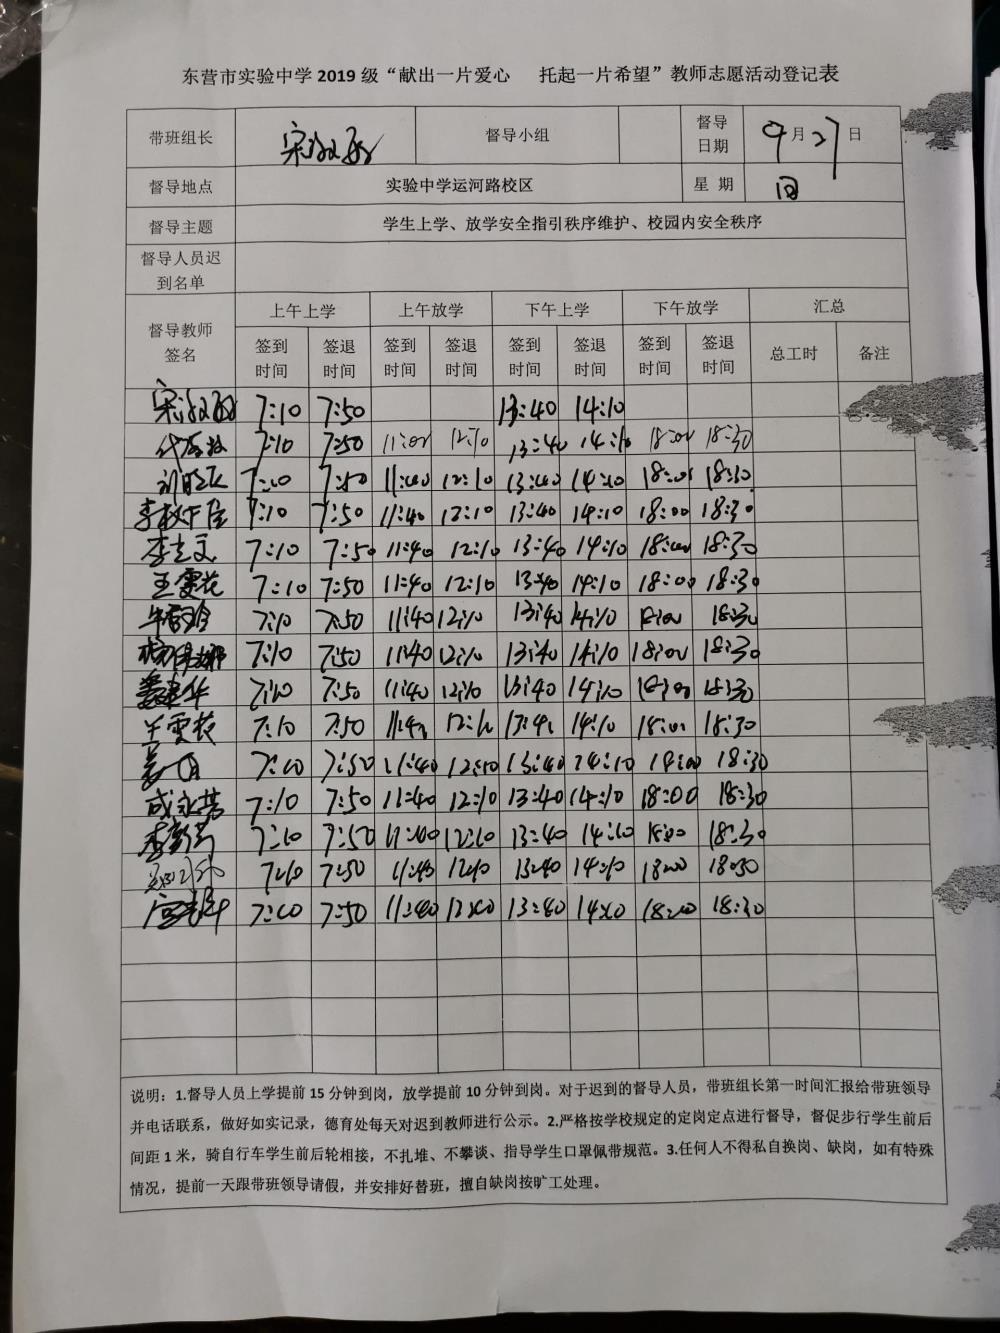 东营市实验中学 2019 级“献出一片爱心 托起一片希望”教师志愿活动登记表
带班组长 督导小组 督导日期 9月27日
督导地点 实验中学运河路校区 星 期
督导主题 学生上学、放学安全指引秩序维护、校园内安全秩序
督导人员迟到名单
督导教师签名 上午上学 上午放学 下午上学 下午放学 汇总
签到时间 签退时间 签到时间 签退时间 签到时间 签退时间 签到时间 签退时间 总工时 备注
7:10 7:50 13:40 14:10
7:10 7:50 12:10 13:40 14:10 18:00 18:30
7:10 7:50 11:40 12:10 13:40 14:10 18:00 18:30
7:10 7:50 11:40 12:10 13:40 14:10 18:00 18:30
李志文 7:10 7:50 11:40 12:10 13:40 14:10 18:00 18:30
王雪花 7:10 7:50 11:40 12:10 13:40 14:10 18:00 18:30
7:10 7:50 11:40 12:10 13:40 14:10 18:00 18:30
7:10 7:50 11:40 12:10 13:40 14:10 18:00 18:30
7:10 7:50 11:40 12:10 13:40 14:10 18:00 18:30
7:10 7:50 11:40 12:10 13:40 14:10 18:00 18:30
7:10 7:50 11:40 12:10 13:40 14:10 18:00 18:30
成永芳 7:10 7:50 11:40 12:10 13:40 14:10 18:00 18:30
7:10 7:50 11:40 12:10 13:40 14:10 18:00 18:30
7:10 7:50 11:40 12:10 13:40 14:10 18:00 18:30
7:10 7:50 11:40 12:10 13:40 14:10 18:00 18:30
说明：1.督导人员上学提前 15 分钟到岗，放学提前 10 分钟到岗。对于迟到的督导人员，带班组长第一时间汇报给带班领导
并电话联系，做好如实记录，德育处每天对迟到教师进行公示。2.严格按学校规定的定岗定点进行督导，督促步行学生前后
间距 1 米，骑自行车学生前后轮相接，不扎堆、不攀谈、指导学生口罩佩带规范。3.任何人不得私自换岗、缺岗，如有特殊
情况，提前一天跟带班领导请假，并安排好替班，擅自缺岗按旷工处理。